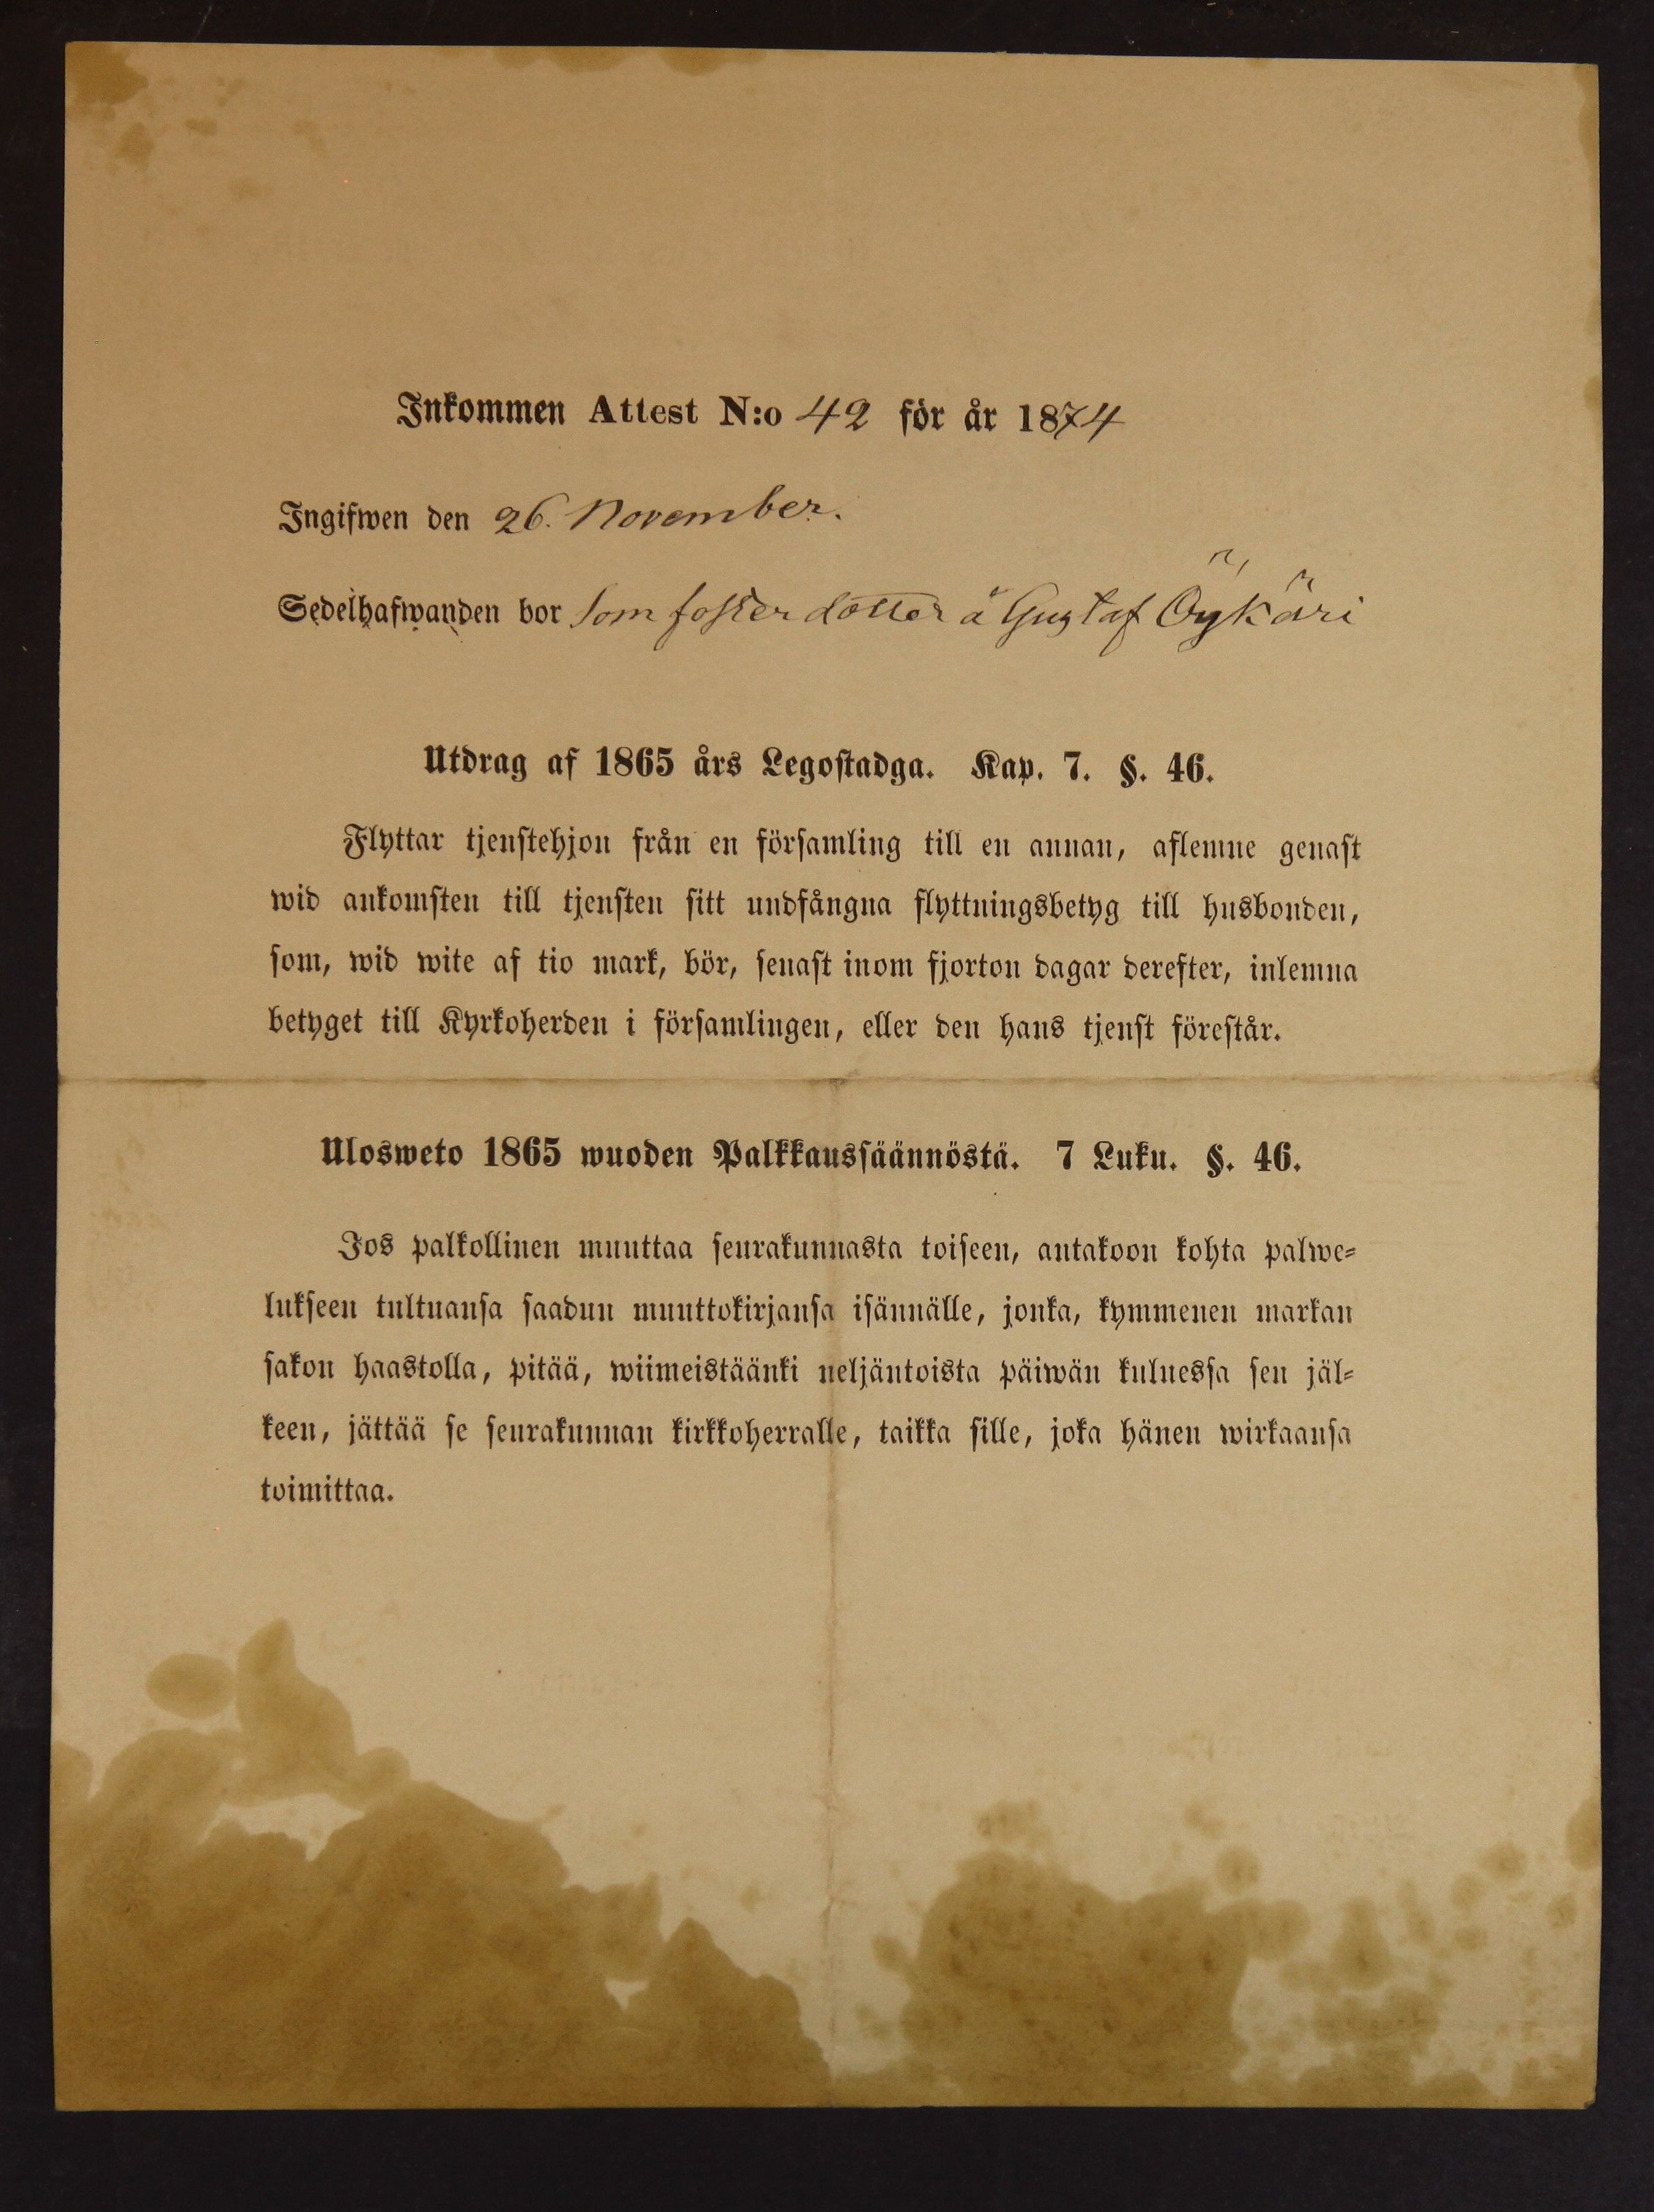 Inkommen Attest N:o 42 för år 1874
Ingifwen den 26. November.
Sedelhafwanden bor Som fosterdotter å Gustaf Öykäri
Utdrag af 1865 års Legostadga. Kap. 7. §. 46.
Flyttar tjenstehjon från en församling till en annan, aflemne genast
wid ankomsten till tjensten sitt undfångna flyttningsbetyg till husbonden,
som, wid wite af tio mark, bör, senast inom fjorton dagar derefter, inlemna
betyget till Kyrkoherden i församlingen, eller den hans tjenst förestår.
Ulosweto 1865 wuoden Palkkaussäännöstä. 7 Luku. §. 46.
Jos palkollinen muuttaa seurakunnasta toiseen, antakoon kohta palwe-
lukseen tultuansa saadun muuttokirjansa isännälle, jonka, kymmenen markan
sakon haastolla, pitää, wiimeistäänki neljäntoista päiwän kuluessa sen jäl-
keen, jättää se seurakunnan kirkkoherralle, taikka sille, joka hänen wirkaansa
toimittaa.